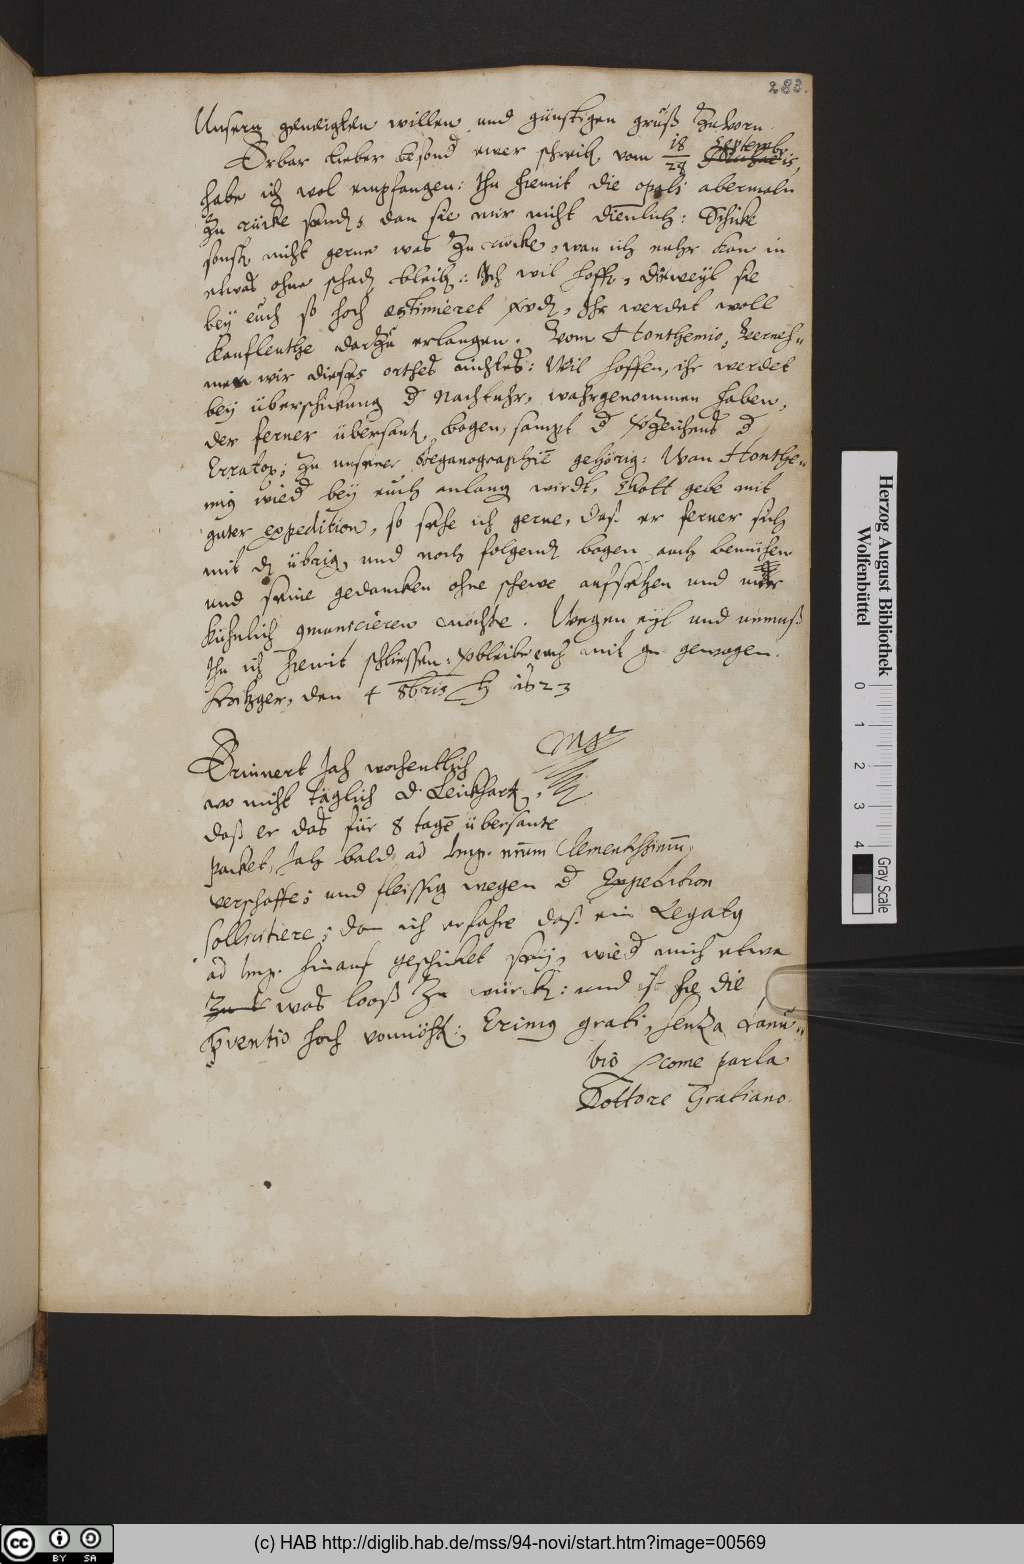 283.
Unsern geneigten willen und günstigen gruß zuvorn.
Erbar lieber besond ewer schreib vom 18/28 Septembr
habe ich wol empfangen: Thu hiemit die opali abermaln
zu rücke send, dan sie mir nicht dienlich: Schicke
sonst nicht gerne was zu rücke, wan ich nuhr kan in
etwas ohne schad bleib: Ich wil hoff, dieweyl sie
bey euch so hoch æstimieret, Ihr werdet woll
Kauffleuthe darzu erlangen. Vom Honthemio, verneh-
men wir dieses orthes nichtes: Wil hoffen, ihr werdet
bey überschickung d Nachtuhr, wahrgenommen haben,
der ferner übersant bogen, sampt d d
Errator, zu unserer Steganographie gehörig: Wan Honthe-
mig wied bey euch anlang wirdt, Gott gebe mit
guter expedition, so sehe ich gerne, daß er ferner sich
mit d übrig, und noch folgend bogen auch bemühen
und seine gedancken ohne schewe auffsetzen und mir
kühnlich möchte. Wegen eyl und unmuß
Thu ich hiemit schliessen: bleibe euch mit gn gewogen.
den 4 8bris 1623
Erinnert Jah wochentlich
wo nicht täglich d Leickhart,
daß er das für 8 tage übersante
packet, Jah bald ad Imp. nrum Clementissimu,
verschaffe; und fleissig wegen d Expedition
sollicitiere; dan ich erfahre daß ein Legatg
ad Imp. hinauf geschicket sey, wied mich etwa
was looß zu würck: und ist hie die
pventio hoch vonnöht: Erimg grati, senza Danu-
bio, come parla
Dottore Gratiano.
Herzog August Bibliothek
Wolfenbüttel
0 1 2 3 4
Gray Scale
cc BY SA
(c) HAB http://diglib.hab.de/mss/94-novi/start.htm?image=00569